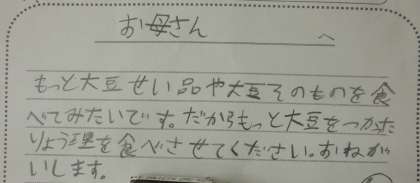 お母さん
へ
もっと大豆せい品や大豆そのものを食
べてみたいです。だからもっと大豆をつかった
りょう理を食べさせてください。おねがい
いします。